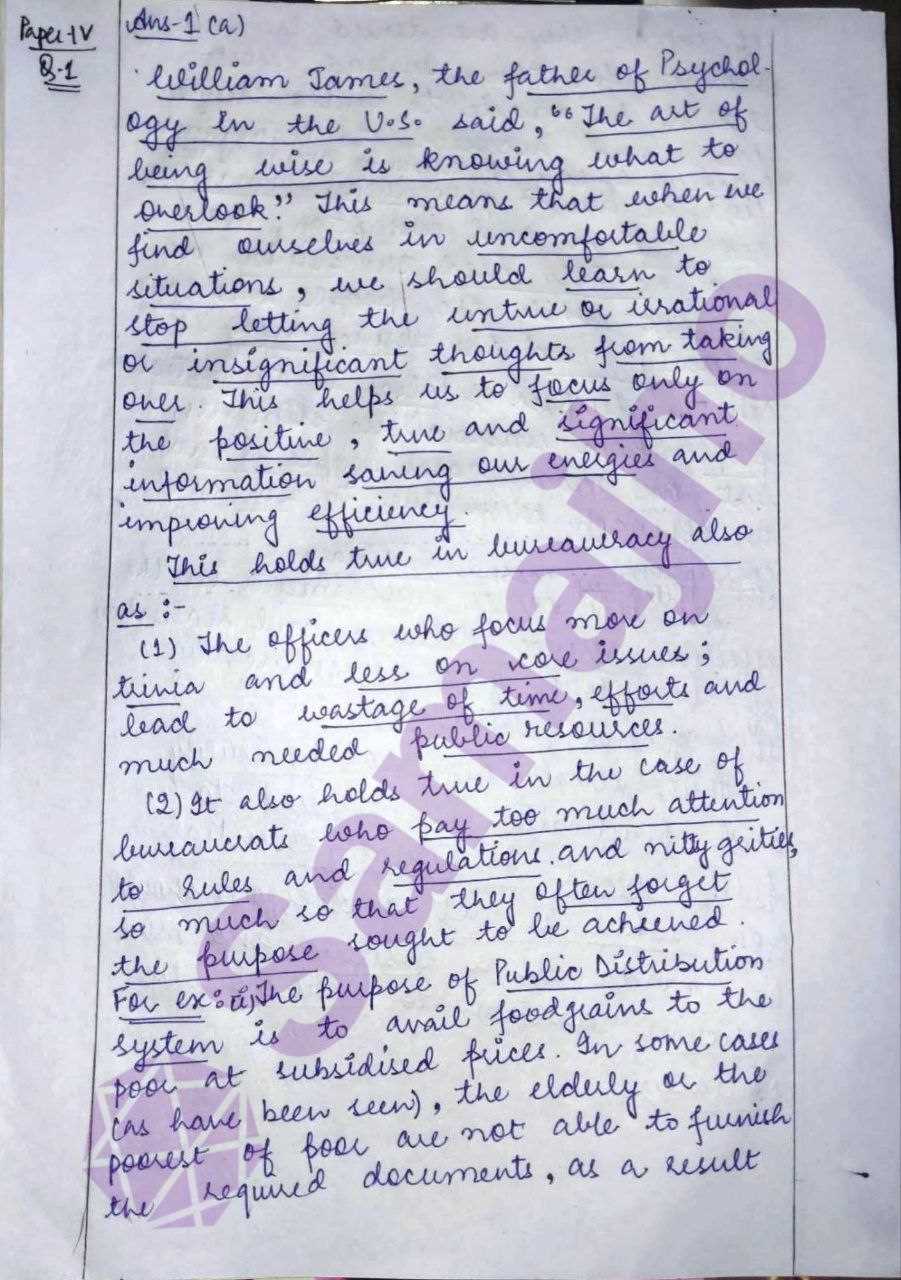 Paper-IV
Q.1
Ans-1 (a)
William James, the father of Psychol-
ogy in the U.S. said, "The art of
being wise is knowing what to
overlook." This means that when we
find ourselves in uncomfortable
situations, we should learn to
stop letting the untrue or irrational
or insignificant thoughts from taking
over. This helps us to focus only on
the positive, true and significant
information saving our energies and
improving efficiency
This holds true in bureaucracy also
as :-
(1) The officers who focus more on
trivia and less on core issues;
lead to wastage of time, efforts and
much needed public resources.
(2) It also holds true in the case of
bureaucrats who pay too much attention
to rules and regulations and nitty grities,
so much so that they often forget
the purpose sought to be achieved.
For ex: (i) The purpose of Public Distribution
system is to avail foodgrains to the
poor at subsidised prices. In some cases
(as have been seen), the elderly or the
poorest of poor are not able to furnish
the required documents, as a result
Samajho